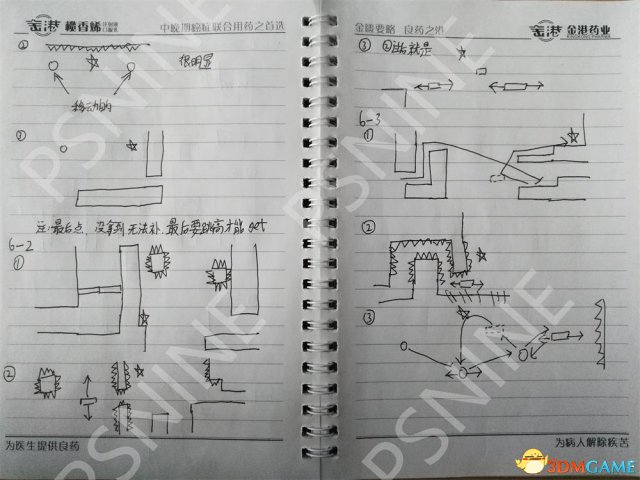 金港 榄香烯 注射液 口服乳
中晚期癌症联合用药之首选
② 很明显
移动的
③
注:最后点,没拿到无法补,最后要跳高才能get
6-2
①
②
为医生提供良药
金匮要略 良药之港
金港 金港药业
③ ②后就是
6-3
①
②
③
为病人解除疾苦
PSNINE
PSNINE
PSNINE
PSNINE
3DMGAME